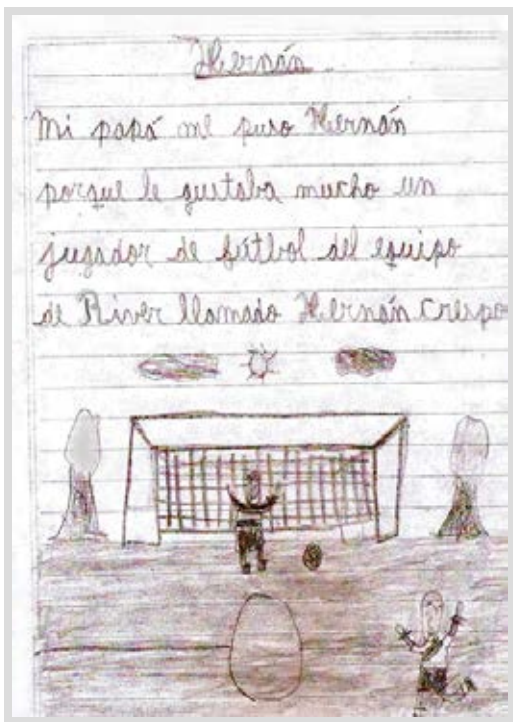 Hernán
Mi papá me puso Hernán
porque le gustaba mucho un
jugador de fútbol del equipo
de River llamado Hernán Crespo